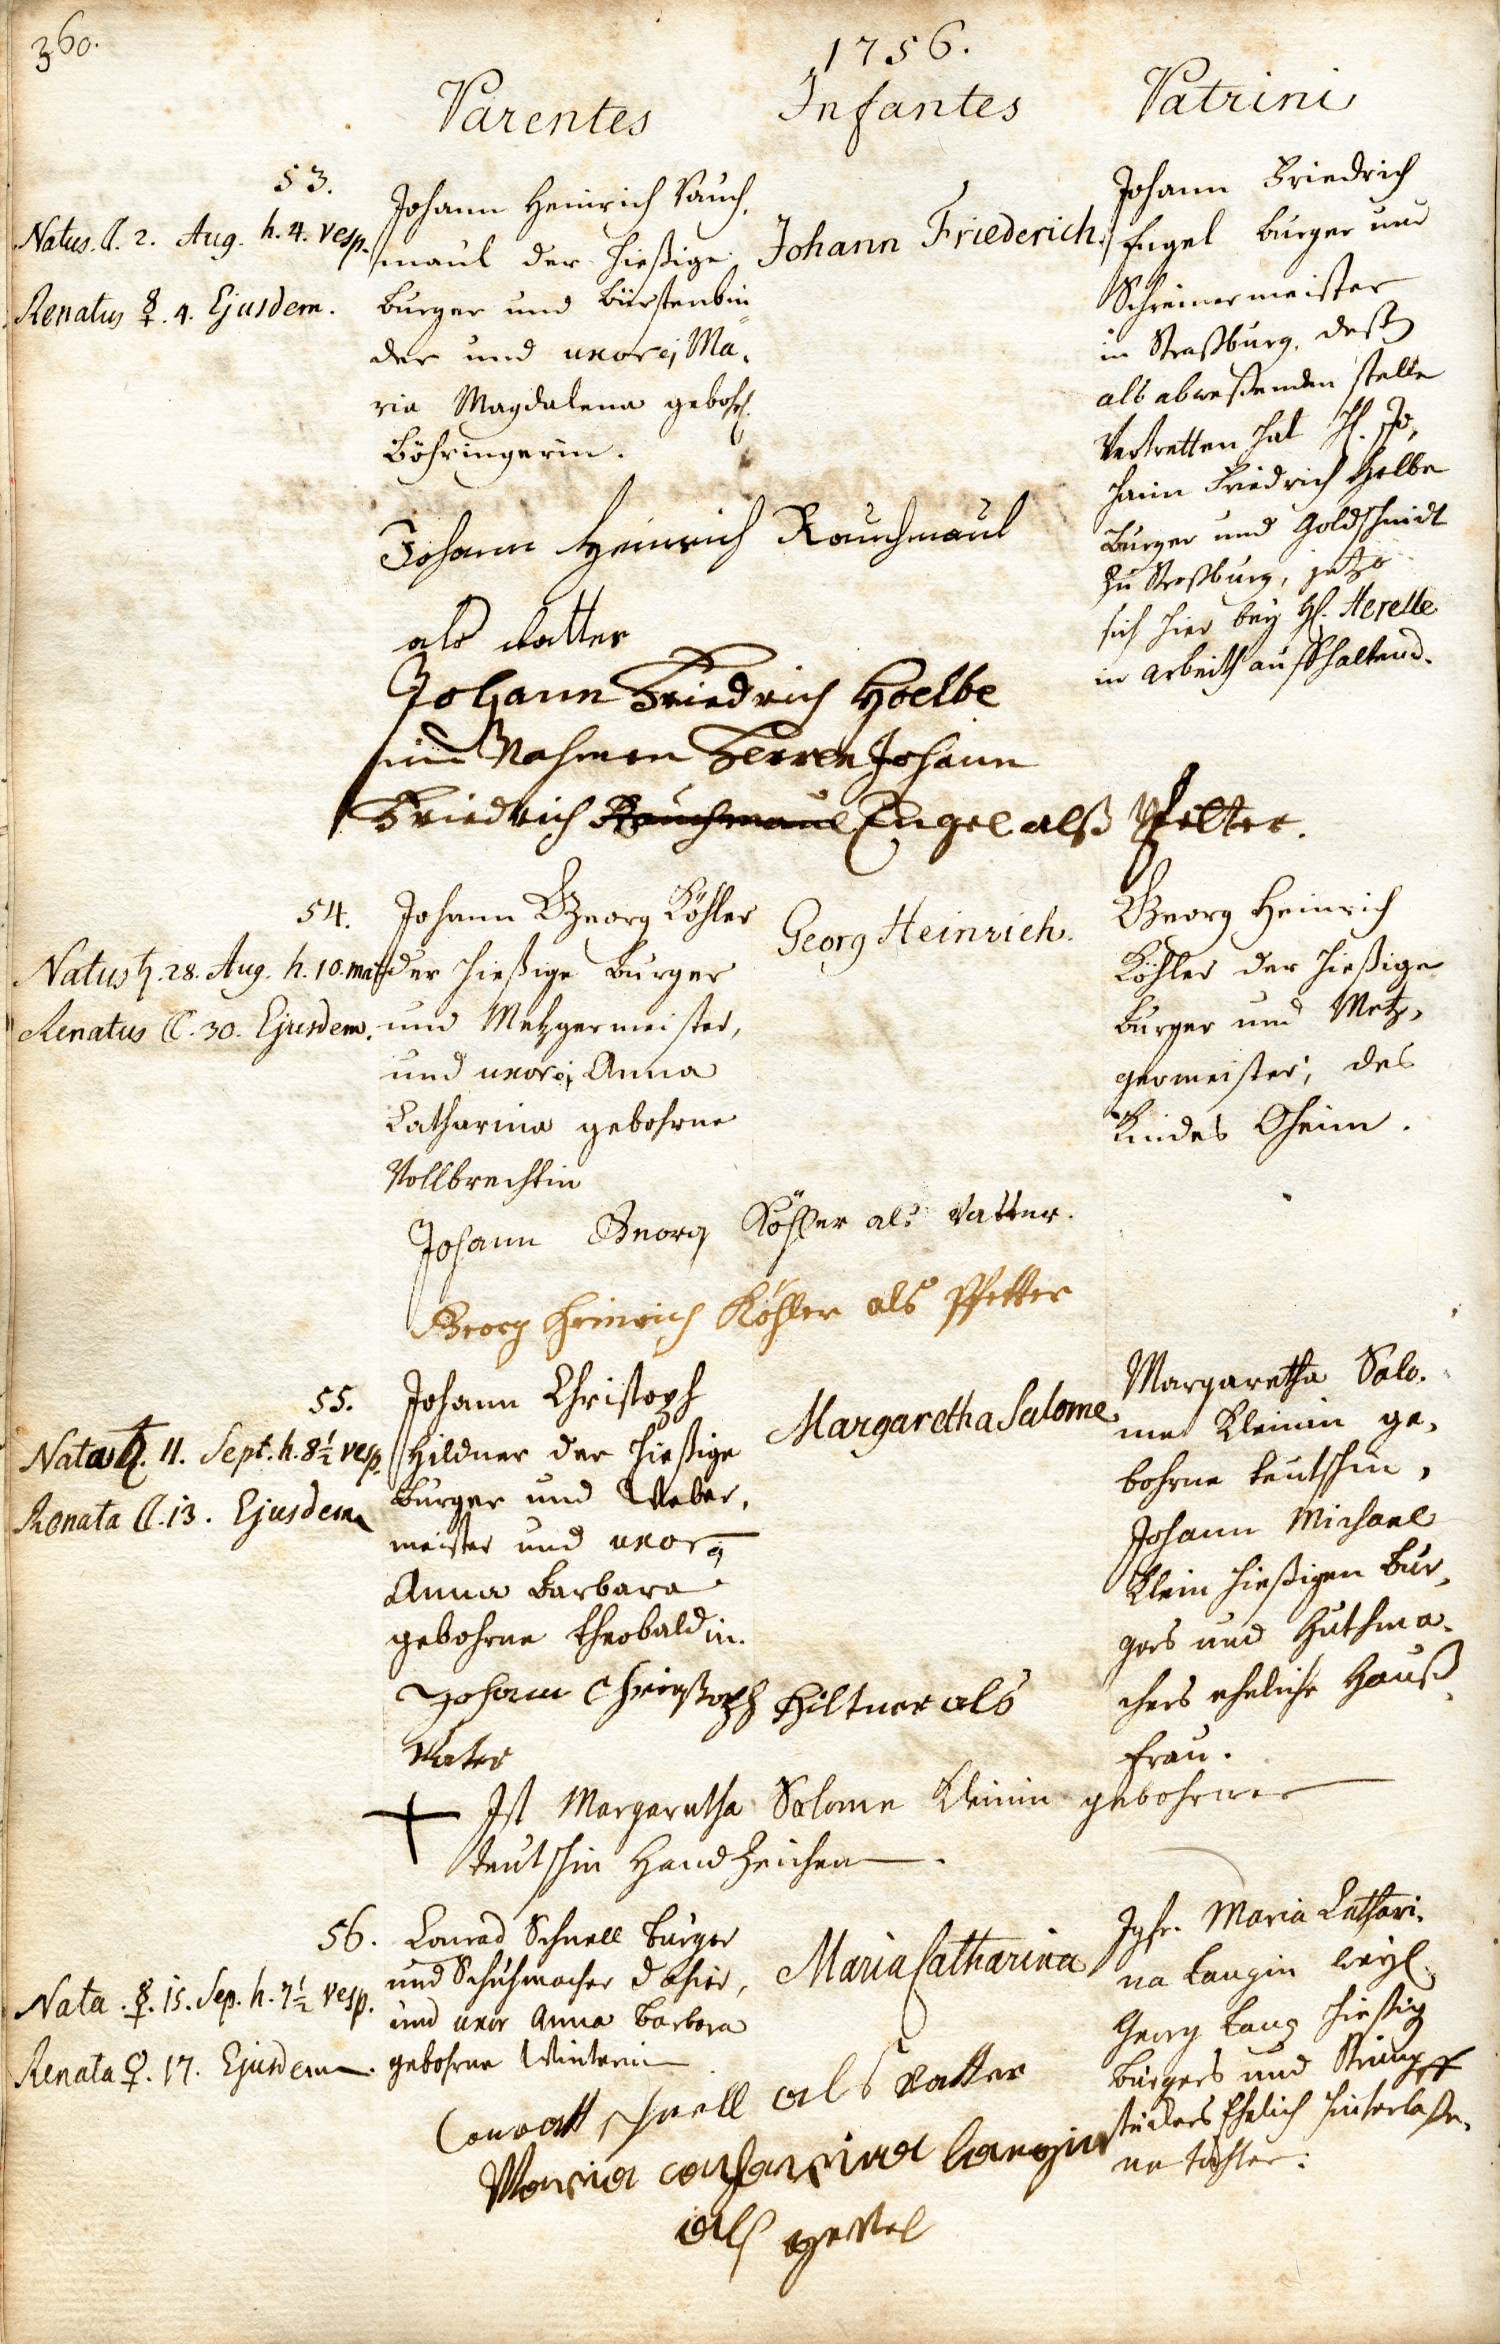 360.
1756.
Parentes
Infantes
Patrini
53.
Natus. ☾. 2. Aug. h. 4. vesp.
Renatus ☿. 4. Ejusdem.
Johann Heinrich Rauch,
maul der hießige
Burger und Bürstenbin
der und uxor ej Ma,
ria Magdalena gebohr.
Böhringerin.
Johann Friederich.
Johann Friedrich
Engel burger und
Schreinermeister
in Straßburg, deßen
als abweßenden stelle
Vertretten hat H. Jo,
hann Friedrich Hoelbe
Burger und Goldschmidt
zu Straßburg, jetzo
sich hier bey H. Herelle
in arbeith aufhaltend.
Johann Heinrich Rauchmaul
als vatter
Johann Friedrich Hoelbe
im Nahmen Herren Johann
Friedrich Rauchmaul Engel alß Pfetter.
54.
Natus ♄. 28. Aug. h. 10. mat
Renatus ☾. 30. Ejusdem.
Johann Georg Köhler
der hießige Burger
und Metzgermeister,
und uxor ej Anna
Catharina gebohrne
Vollbrechtin
Georg Heinrich.
Georg Heinrich
Köhler der hießige
Burger und Metz,
germeister, des
Kindes Oheim.
Johann Georg Köhler als vatter.
Georg Heinrich Köhler als Pfetter
55.
Nata ♄. 11. Sept. h. 8½ vesp.
Renata ☾. 13. Ejusdem
Johann Christoph
Hildner der hießige
Burger und Weber,
meister und uxor ej
Anna Barbara
gebohrne Theobaldin.
Margaretha Salome
Margaretha Salo,
me Kleinin ge,
bohrne teutschin,
Johann Michael
Klein hießigen Bur,
gers und Huthma,
chers eheliche Hauß,
frau.
Johann Christoph Hiltner als
Vater
Ist Margaretha Salome Kleinin gebohrne
teutschin Handzeichen.
56.
Nata. ☿. 15. Sep. h. 7½ vesp.
Renata ♀. 17. Ejusdem.
Conrad Schnell Burger
und Schuhmacher dahier,
und uxor Anna Barbara
gebohrne Winterin
Maria Catharina
Jgfr. Maria Cathari,
na Langin weyl.
Georg Lang hießig
Burgers und Strumpff
strickers Ehelich hinterlaße,
ne tochter.
Conratt schnell als vatter
Maria catharina langin
als gettel